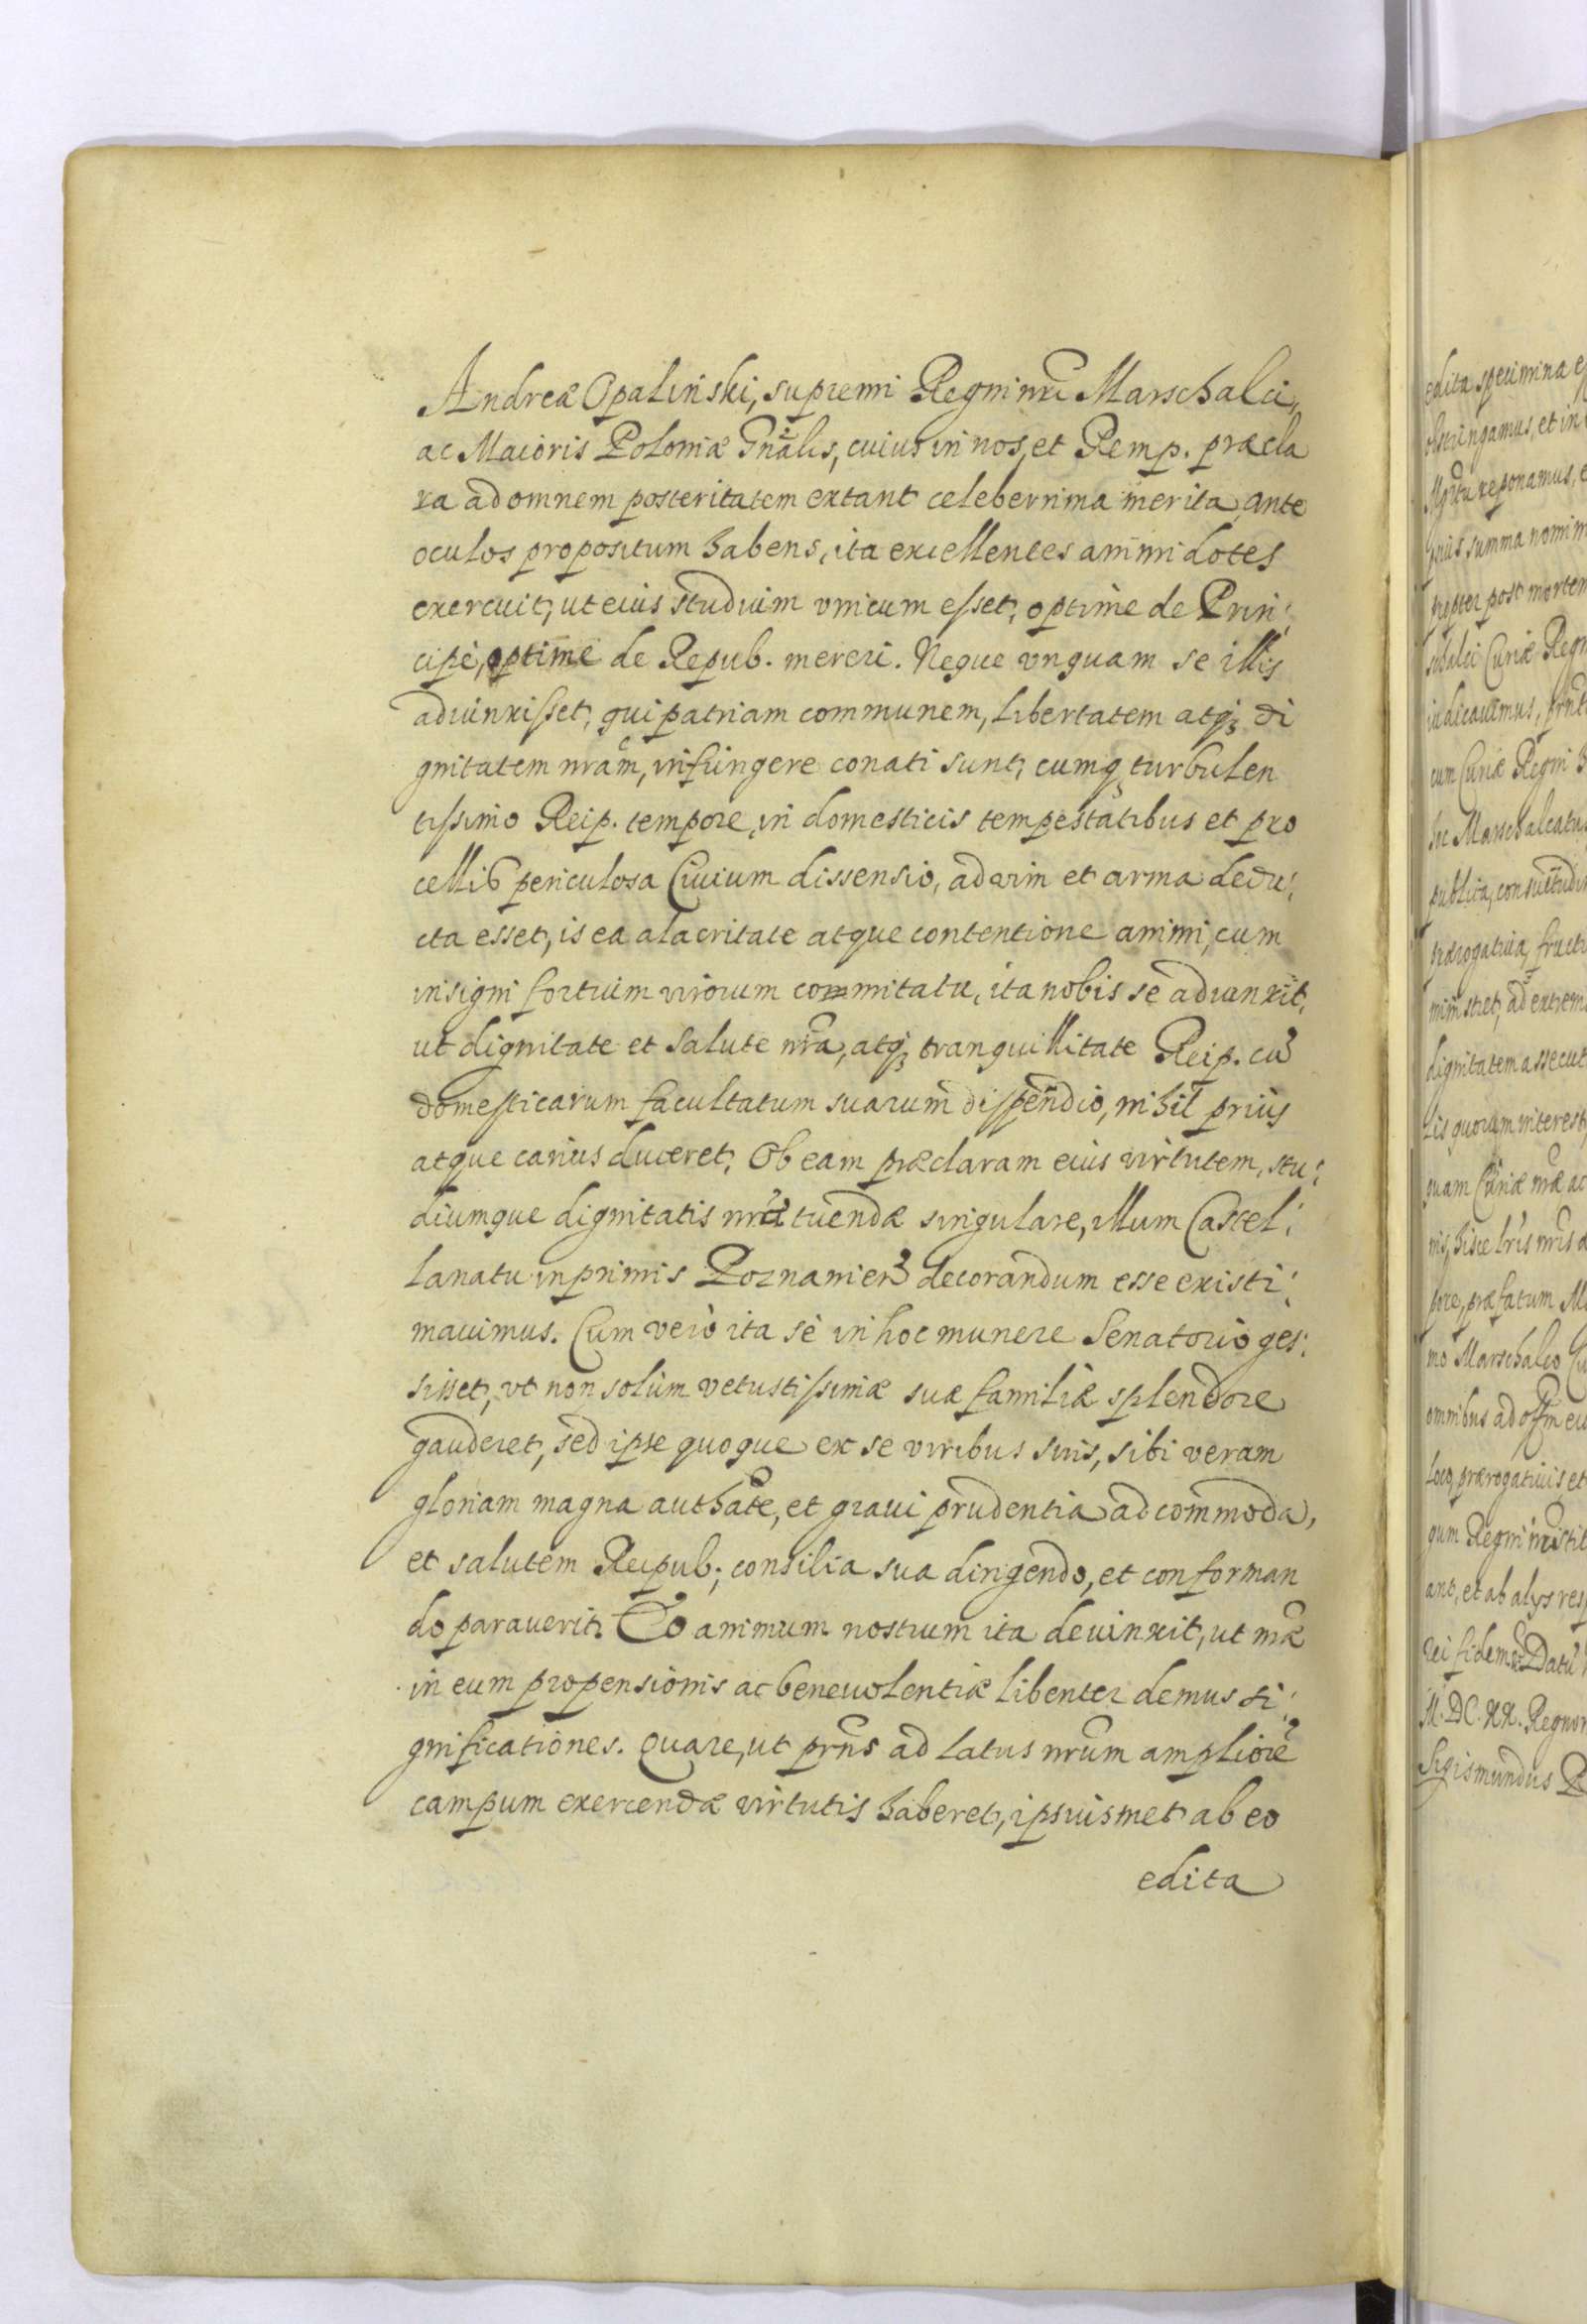 Andreæ Opalinski, supremi Regni nri Marschalci,
ac Maioris Poloniæ Gnalis, cuius in nos, et Remp. præcla
ra ad omnem posteritatem extant celeberrima merita, ante
oculos propositum habens, ita excellentes animi dotes
exercuit, ut eius studium vnicum esset, optime de Prin:
cipe, optime de Repub. mereri. Neque vnquam se illis
adiunxisset, qui patriam communem, libertatem atq; di
gnitatem nram, infringere conati sunt, cumq; turbulen
tissimo Reip. tempore, in domesticis tempestatibus et pro
cellis periculosa Ciuium dissensio, ad vim et arma dedu:
cta esset, is ea alacritate atque contentione animi, cum
insigni fortium virorum commitatu, ita nobis se adiunxit,
ut dignitate et salute nra, atq; tranquillitate Reip. cū
domesticarum facultatum suarum dispendio, nihil prius
atque carius duceret, Ob eam præclaram eius virtutem, stu:
diumque dignitatis nræ tuendæ singulare, illum Castel:
lanatu inprimis Poznanien decorandum esse existi:
mauimus. Cum verò ita sè in hoc munere Senatorio ges:
sisset, vt non solùm vetustissimæ suæ familiæ splendore
gauderet, sed ipse quoque ex se viribus suis, sibi veram
gloriam magna authate, et graui prudentia ad commoda,
et salutem Reipub; consilia sua dirigendo, et conforman
do parauerit. Eo animum nostrum ita deuinxit, ut nræ
in eum propensionis ac beneuolentiæ libenter demus si:
gnificationes. Quare, ut prns ad latus nrum ampliorē
campum exercendæ virtutis haberet, ipsiusmet ab eo
edita
edita specimina
obstringamus, et in
reponamus,
summa
propter post mortem
Curiæ Regn
indicauimus,
cum Curiæ Regni
Marschalcatu
publica, consuetudin
prærogatiua, fructu
ad extrem
dignitatem assecut
lis quorum interest
quam Curiæ nræ ac
nis, hisce lris nris
præfatum
mo Marschalco Cu
omnibus ad offm
loco, prærogatiuis et
gum Regni
ant, et ab alijs res
rei fidem Datū
M. DC. XX. Regnor
Sigismundus